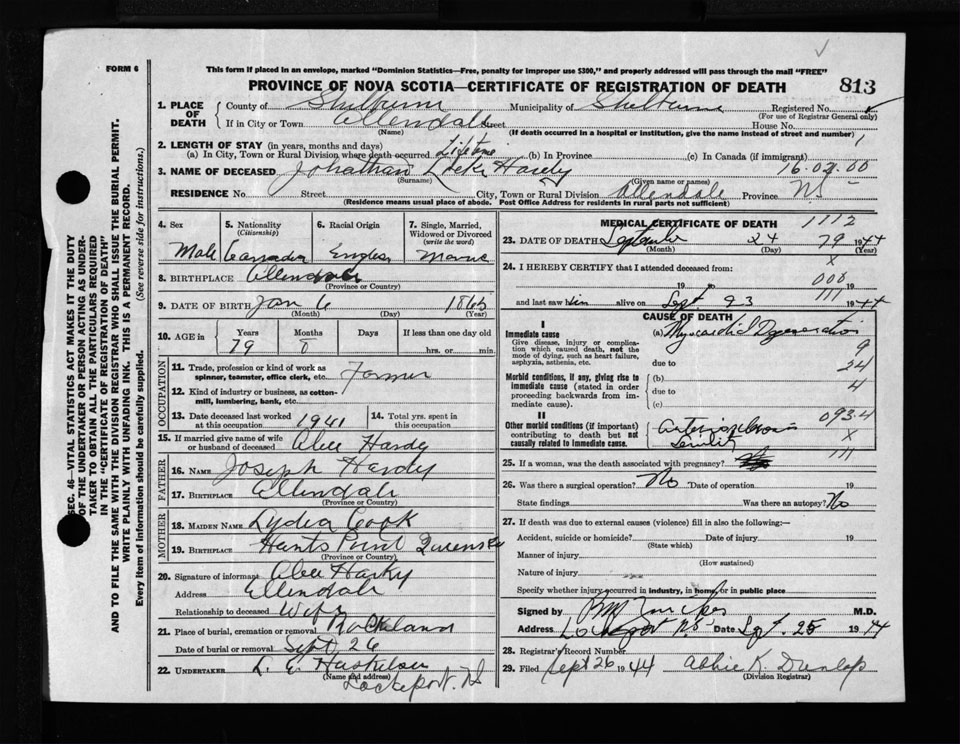 FORM 6
This form if placed in an envelope, marked "Dominion Statistics—Free, penalty for improper use $300," and properly addressed will pass through the mail "FREE"
PROVINCE OF NOVA SCOTIA—CERTIFICATE OF REGISTRATION OF DEATH 813
1. PLACE OF DEATH
County of Shelburne Municipality of Shelburne Registered No.
(For use of Registrar General only)
If in City or Town Allendale Street House No.
(Name) (If death occurred in a hospital or institution, give the name instead of street and number)
2. LENGTH OF STAY (in years, months and days)
(a) In City, Town or Rural Division where death occurred Lifetime (b) In Province (c) In Canada (if immigrant)
3. NAME OF DECEASED Jonathan Locke Hardy 16.02.00
(Surname) (Given name or names)
RESIDENCE No. Street City, Town or Rural Division Allendale Province NS
(Residence means usual place of abode. Post Office Address for residents in rural parts not sufficient)
4. Sex 5. Nationality (Citizenship) 6. Racial Origin 7. Single, Married, Widowed or Divorced (write the word)
Male Canadian English
8. BIRTHPLACE Allendale
(Province or Country)
9. DATE OF BIRTH Jan 6 1865
(Month) (Day) (Year)
10. AGE in Years Months Days If less than one day old
79 hrs. or min.
OCCUPATION
11. Trade, profession or kind of work as spinner, teamster, office clerk, etc. Farmer
12. Kind of industry or business, as cotton-mill, lumbering, bank, etc.
13. Date deceased last worked at this occupation 1941 14. Total yrs. spent in this occupation
15. If married give name of wife or husband of deceased Alice Hardy
FATHER
16. NAME Joseph Hardy
17. BIRTHPLACE Allendale
(Province or Country)
MOTHER
18. MAIDEN NAME Lydia Cook
19. BIRTHPLACE Hunts Point Queens
(Province or Country)
20. Signature of informant Alice Hardy
Address Allendale
Relationship to deceased Wife
21. Place of burial, cremation or removal Rockland
Date of burial or removal Sept 26
22. UNDERTAKER L. E.
(Name and address)
Lockeport. NS
MEDICAL CERTIFICATE OF DEATH 1112
23. DATE OF DEATH September 24 79 1944
(Month) (Day) (Year)
24. I HEREBY CERTIFY that I attended deceased from:
x
19 to 008 19
111
and last saw him alive on Sept. 23 1944
CAUSE OF DEATH
I
Immediate cause
Give disease, injury or complication which caused death, not the mode of dying, such as heart failure, asphyxia, asthenia, etc.
(a) Myocardial Degeneration
9
due to 24
Morbid conditions, if any, giving rise to immediate cause (stated in order proceeding backwards from immediate cause).
(b) 4
due to
(c)
II
Other morbid conditions (if important) contributing to death but not causally related to immediate cause.
093.4
Arteriosclerosis x
Senility 111
25. If a woman, was the death associated with pregnancy?
26. Was there a surgical operation? No Date of operation 19
State findings Was there an autopsy? No
27. If death was due to external causes (violence) fill in also the following:—
Accident, suicide or homicide? Date of injury 19
(State which)
Manner of injury
(How sustained)
Nature of injury
Specify whether injury occurred in industry, in home, or in public place
Signed by M.D.
Address Lockeport NS Date Sept. 25 1944
28. Registrar's Record Number
29. Filed Sept 26 1944 Abbie K. Dunlop
(Division Registrar)
SEC. 46—VITAL STATISTICS ACT MAKES IT THE DUTY
OF THE UNDERTAKER OR PERSON ACTING AS UNDER-
TAKER TO OBTAIN ALL THE PARTICULARS REQUIRED
IN THE "CERTIFICATE OF REGISTRATION OF DEATH"
AND TO FILE THE SAME WITH THE DIVISION REGISTRAR WHO SHALL ISSUE THE BURIAL PERMIT.
WRITE PLAINLY WITH UNFADING INK. THIS IS A PERMANENT RECORD.
Every item of information should be carefully supplied. (See reverse side for instructions.)